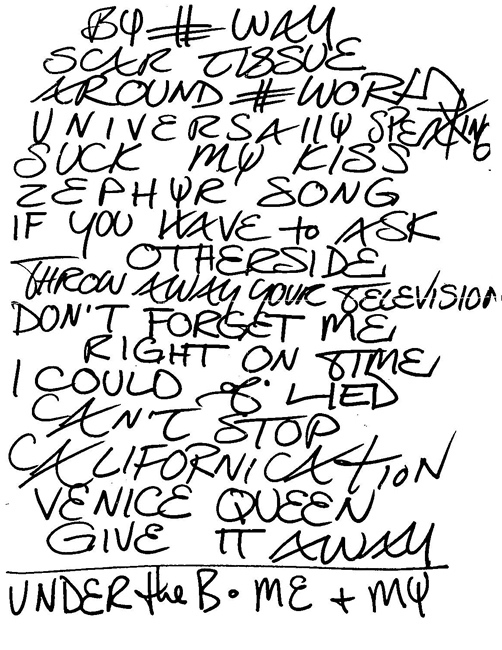 BY # WAY
SCAR TISSUE
AROUND # WORLD
UNIVERSALLY SPEAKING
SUCK MY KISS
ZEPHYR SONG
IF YOU HAVE to ASK
OTHERSIDE
THROW AWAY YOUR TELEVISION
DON'T FORGET ME
RIGHT ON TIME
I COULD LIED
CAN'T STOP
CALIFORNICATION
VENICE QUEEN
GIVE IT AWAY
UNDER the B. ME + MY